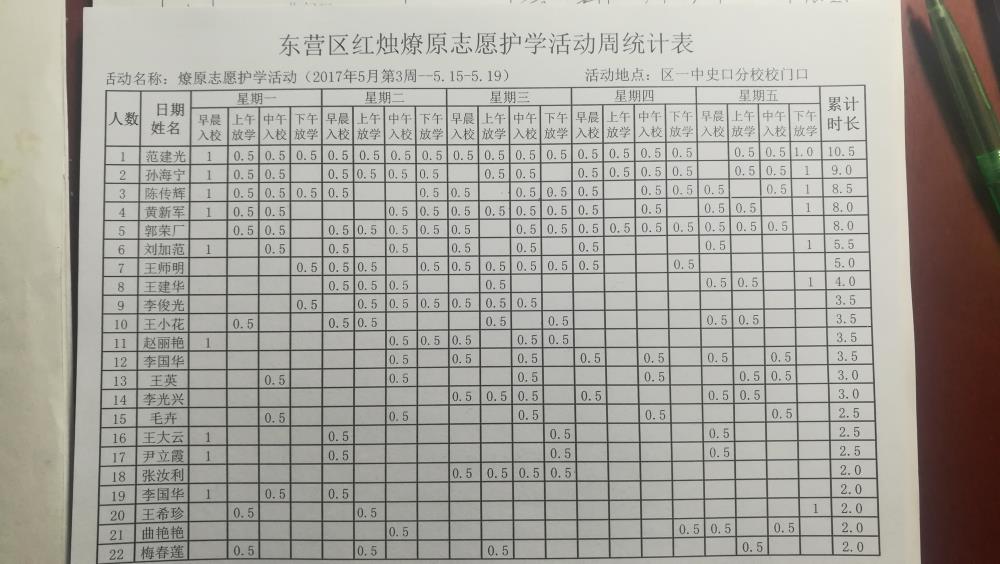 东营区红烛燎原志愿护学活动周统计表
活动名称：燎原志愿护学活动（2017年5月第3周--5.15-5.19） 活动地点：区一中史口分校校门口
人数 日期 姓名 星期一 星期二 星期三 星期四 星期五 累计时长
早晨入校 上午放学 中午入校 下午放学 早晨入校 上午放学 中午入校 下午放学 早晨入校 上午放学 中午入校 下午放学 早晨入校 上午放学 中午入校 下午放学 早晨入校 上午放学 中午入校 下午放学
1 范建光 1 0.5 0.5 0.5 0.5 0.5 0.5 0.5 0.5 0.5 0.5 0.5 0.5 0.5 0.5 0.5 0.5 0.5 1.0 10.5
2 孙海宁 1 0.5 0.5 0.5 0.5 0.5 0.5 0.5 0.5 0.5 0.5 0.5 0.5 0.5 0.5 1 9.0
3 陈传辉 1 0.5 0.5 0.5 0.5 0.5 0.5 0.5 0.5 0.5 0.5 0.5 0.5 0.5 0.5 1 8.5
4 黄新军 1 0.5 0.5 0.5 0.5 0.5 0.5 0.5 0.5 0.5 0.5 0.5 0.5 1 8.0
5 郭荣厂 0.5 0.5 0.5 0.5 0.5 0.5 0.5 0.5 0.5 0.5 0.5 0.5 0.5 0.5 0.5 0.5 8.0
6 刘加范 1 0.5 0.5 0.5 0.5 0.5 0.5 0.5 1 5.5
7 王师明 0.5 0.5 0.5 0.5 0.5 0.5 0.5 0.5 0.5 0.5 5.0
8 王建华 0.5 0.5 0.5 0.5 0.5 0.5 1 4.0
9 李俊光 0.5 0.5 0.5 0.5 0.5 0.5 0.5 3.5
10 王小花 0.5 0.5 0.5 0.5 0.5 0.5 0.5 3.5
11 赵丽艳 1 0.5 0.5 0.5 0.5 0.5 3.5
12 李国华 0.5 0.5 0.5 0.5 0.5 0.5 0.5 3.5
13 王英 0.5 0.5 0.5 0.5 0.5 0.5 3.0
14 李光兴 0.5 0.5 0.5 0.5 0.5 0.5 3.0
15 毛卉 0.5 0.5 0.5 0.5 0.5 2.5
16 王大云 1 0.5 0.5 0.5 2.5
17 尹立霞 1 0.5 0.5 0.5 2.5
18 张汝利 0.5 0.5 0.5 0.5 2.0
19 李国华 1 0.5 0.5 2.0
20 王希珍 0.5 0.5 1 2.0
21 曲艳艳 0.5 0.5 0.5 0.5 2.0
22 梅春莲 0.5 0.5 0.5 0.5 2.0